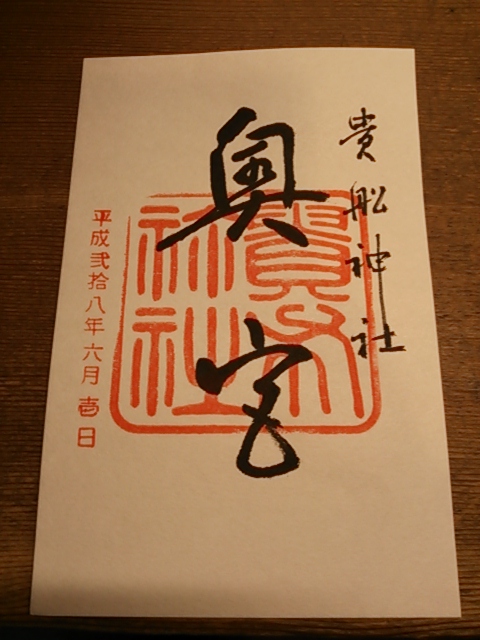 貴船神社
奥宮
平成弐拾八年六月壱日